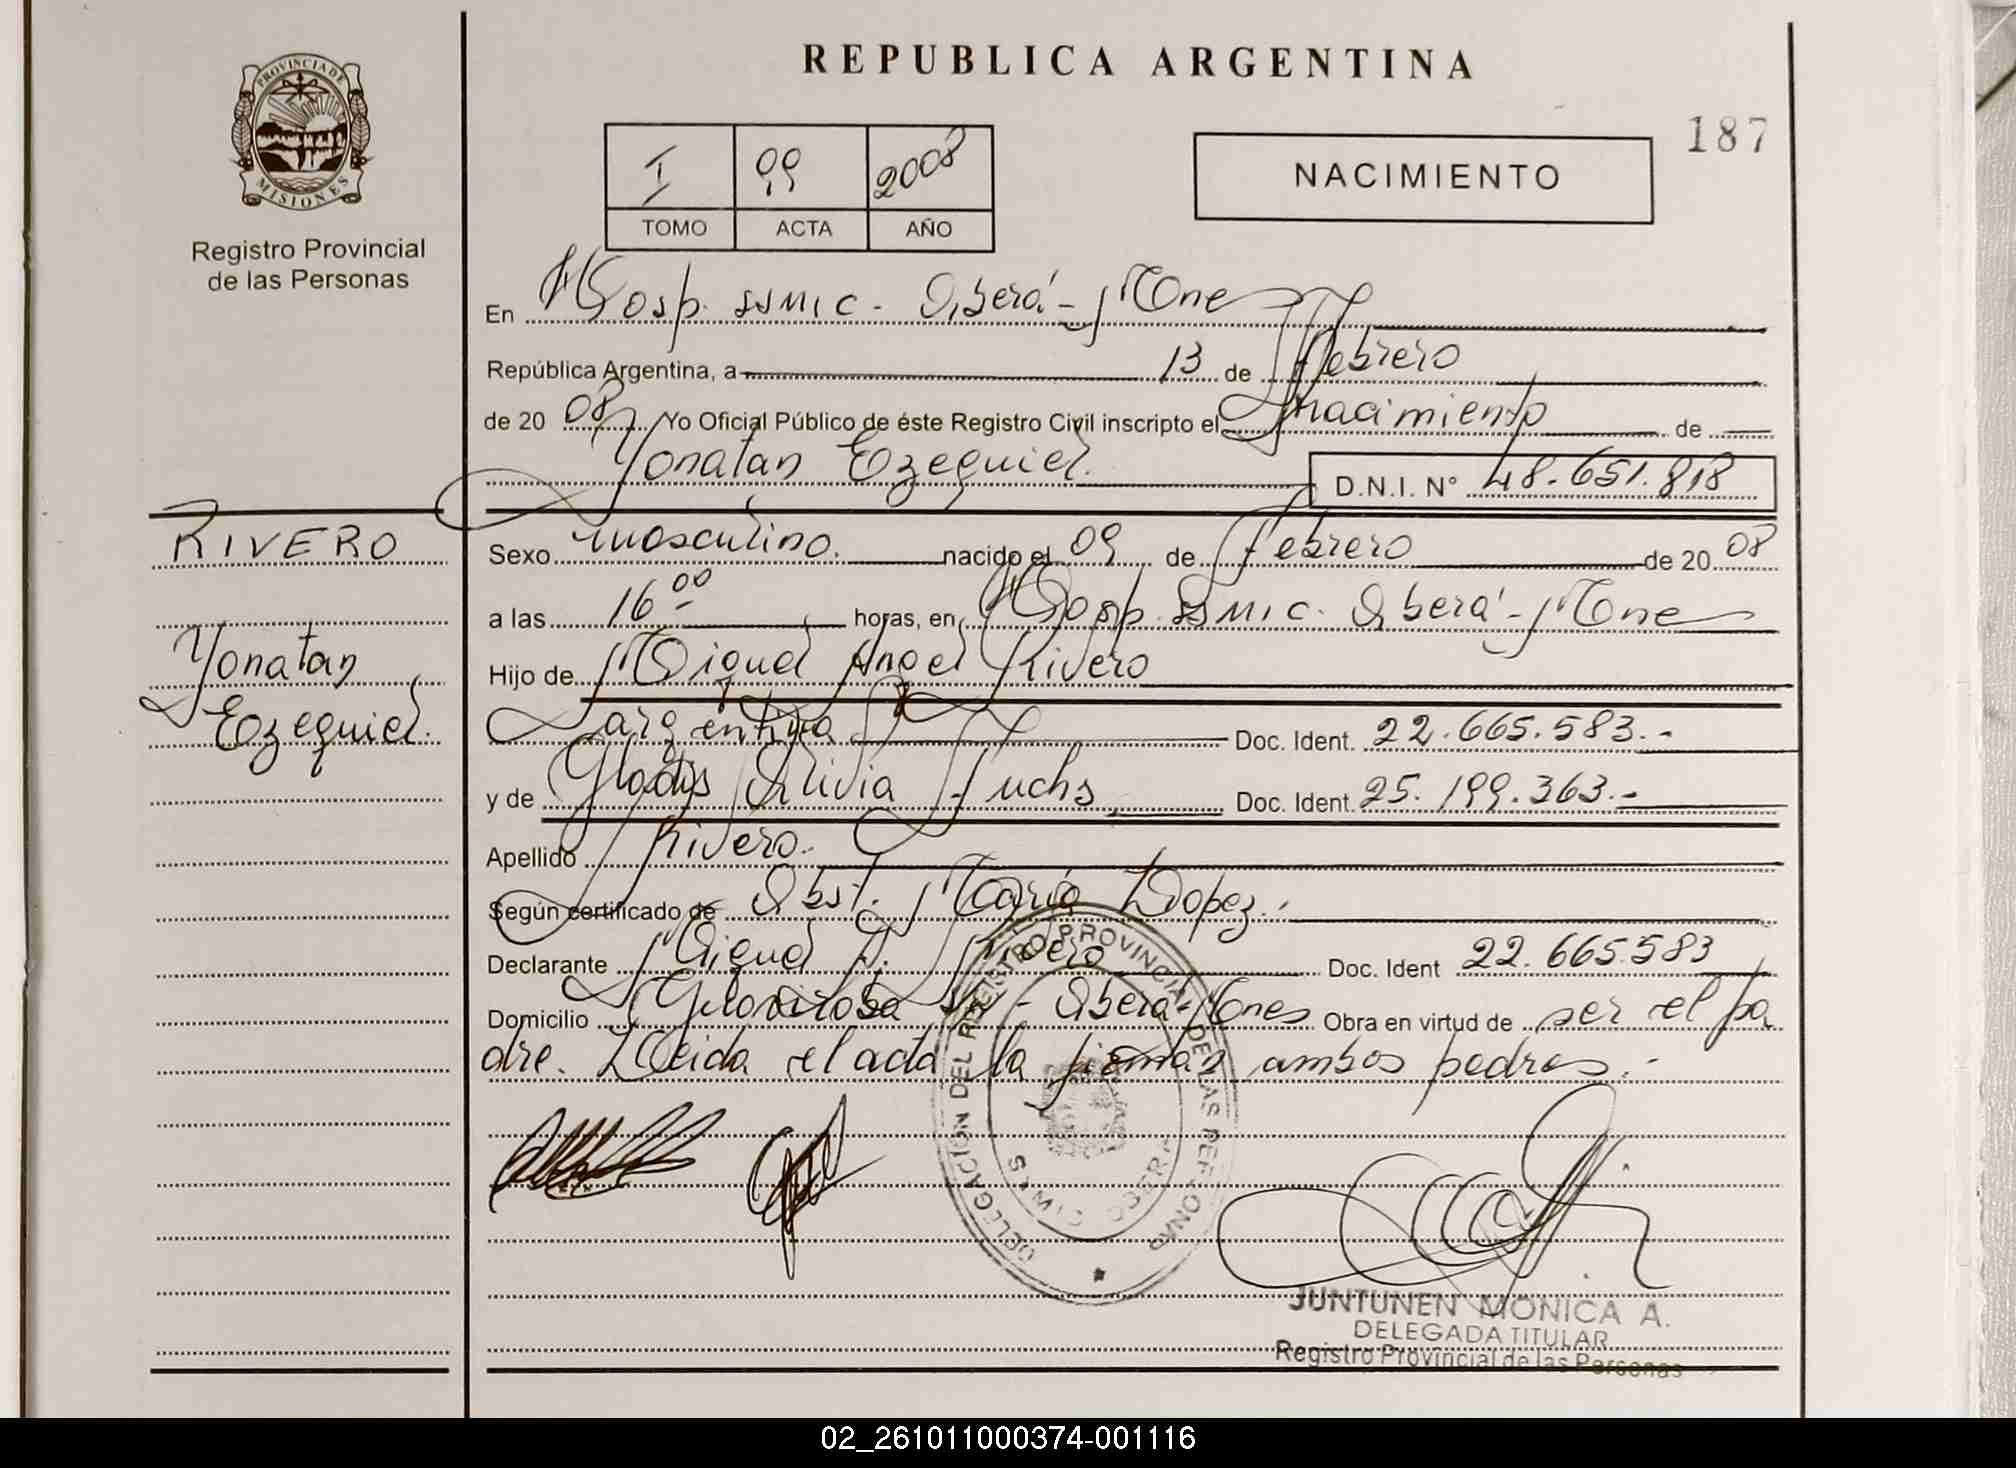 REPUBLICA ARGENTINA
187
PROVINCIA DE
MISIONES
Registro Provincial
de las Personas
I 99 2008
TOMO ACTA AÑO
NACIMIENTO
En Hosp. SSMIC - Oberá - Mnes
República Argentina, a 13 de Febrero
de 20 08, Yo Oficial Público de éste Registro Civil inscripto el nacimiento de
Yonatan Ezequiel. D.N.I. N° 48.651.818
RIVERO
Yonatan
Ezequiel.
Sexo masculino. nacido el 09 de Febrero de 20 08
a las 16 00 horas, en Hosp. SSMIC. Oberá - Mnes
Hijo de Miguel Angel Rivero
argentina Doc. Ident. 22.665.583.-
y de Gladys Silvia Fuchs Doc. Ident. 25.199.363.-
Apellido Rivero.
Según certificado de Obst. María Lopez.
Declarante Miguel A. Rivero Doc. Ident 22.665.583
Domicilio Oberá - Mnes Obra en virtud de ser el pa
dre. Leida el acta la firman ambos padres.-
DELEGACIÓN DEL REGISTRO PROVINCIAL DE LAS PERSONAS
JUNTUNEN MONICA A.
DELEGADA TITULAR
Registro Provincial de las Personas
02_261011000374-001116